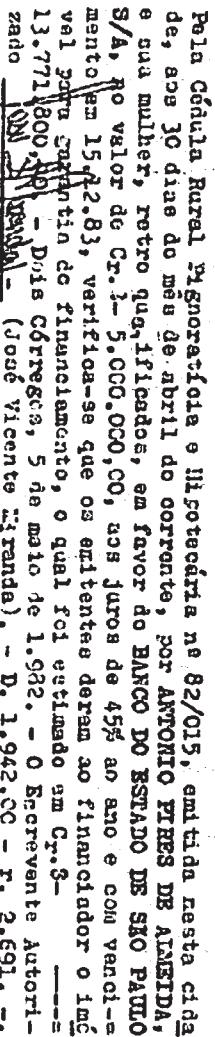 Pela Cédula Rural Pignoratícia e Hipotecária nº 82/015, emitida nesta cida
de, aos 30 dias do mês de abril do corrente, por ANTONIO PIRES DE ALMEIDA,
e sua mulher, retro qualificados, em favor do BANCO DO ESTADO DE SÃO PAULO
S/A, no valor de Cr.$- 5.000.000,00, aos juros de 45% ao ano e com venci-=
mento em 15.12.83, verifica-se que os emitentes deram ao financiador o imó
vel para garantia do financiamento, o qual foi estimado em Cr.$- ----=
13.771.800,00. - Dois Córregos, 5 de maio de 1.982. - O Escrevante Autori-
zado (José Vicente Miranda). - D. 1.942.00 - r. 2.691. -.